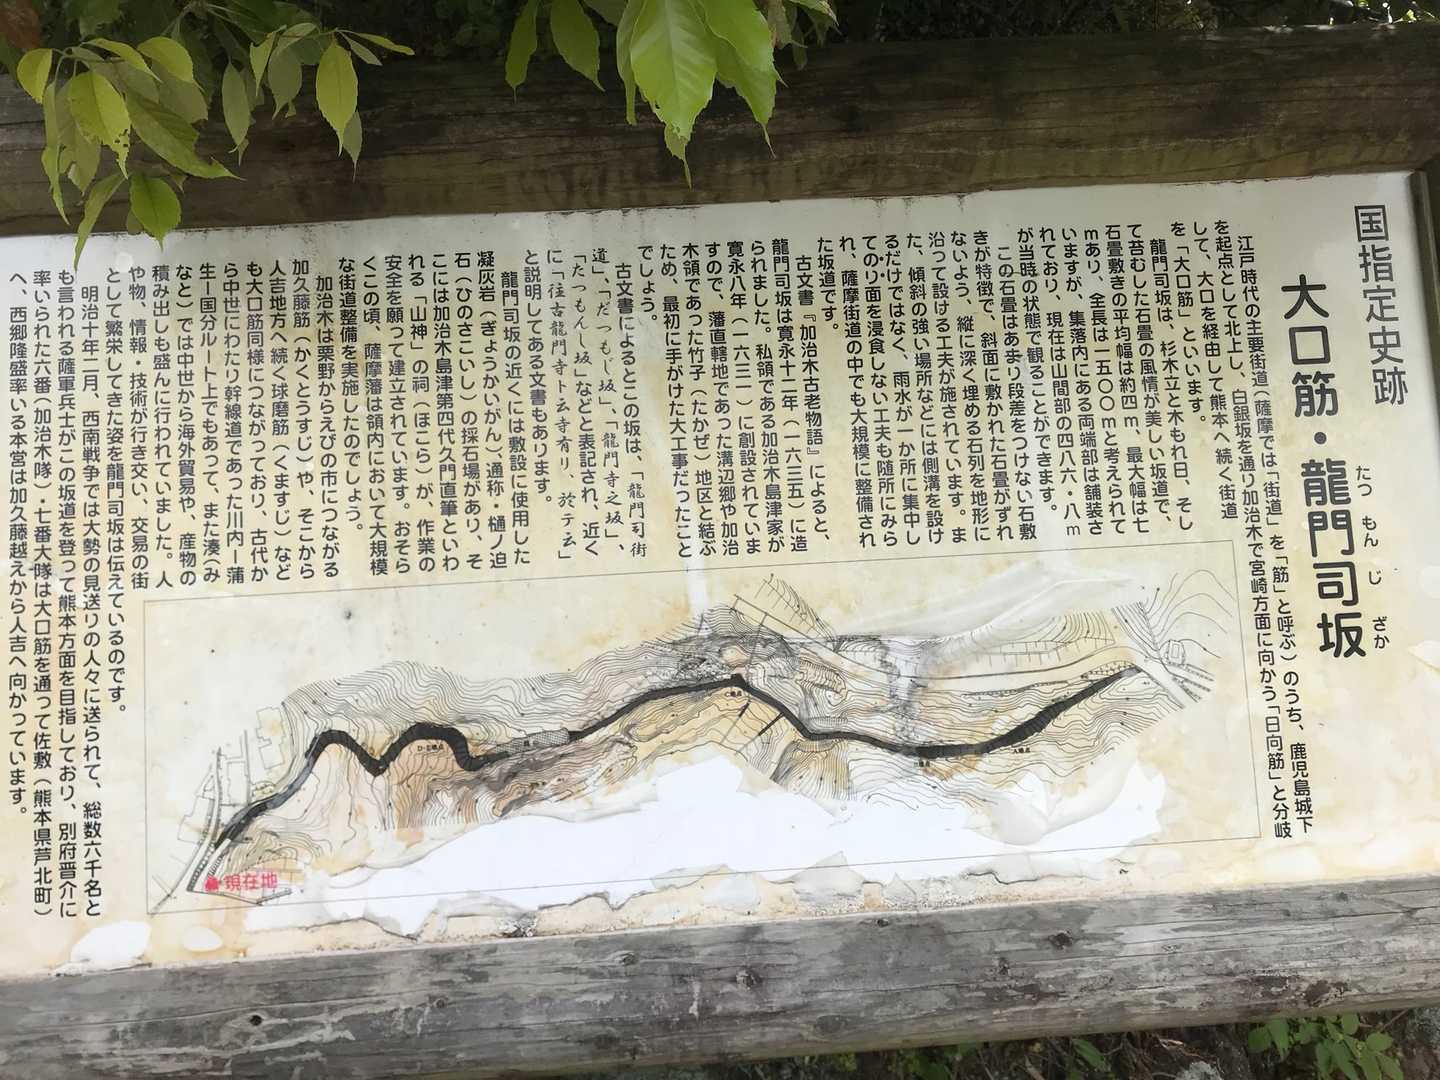 国指定史跡
大口筋・龍門司坂
たつ もん じ ざか
江戸時代の主要街道（薩摩では「街道」を「筋」と呼ぶ）のうち、鹿児島城下
を起点として北上し、白銀坂を通り加治木で宮崎方面に向かう「日向筋」と分岐
して、大口を経由して熊本へ続く街道
を「大口筋」といいます。
龍門司坂は、杉木立と木もれ日、そし
て苔むした石畳の風情が美しい坂道で、
石畳敷きの平均幅は約四m、最大幅は七
mあり、全長は一五〇〇mと考えられて
いますが、集落内にある両端部は舗装さ
れており、現在は山間部の四八六・八m
が当時の状態で観ることができます。
この石畳はあまり段差をつけない石敷
きが特徴で、斜面に敷かれた石畳がずれ
ないよう、縦に深く埋める石列を地形に
沿って設ける工夫が施されています。ま
た、傾斜の強い場所などには側溝を設け
るだけではなく、雨水が一か所に集中し
てのり面を浸食しない工夫も随所にみら
れ、薩摩街道の中でも大規模に整備され
た坂道です。
古文書『加治木古老物語』によると、
龍門司坂は寛永十二年（一六三五）に造
られました。私領である加治木島津家が
寛永八年（一六三一）に創設されていま
すので、藩直轄地であった溝辺郷や加治
木領であった竹子（たかぜ）地区と結ぶ
ため、最初に手がけた大工事だったこと
でしょう。
古文書によるとこの坂は、「龍門司街
道」、「だつもじ坂」、「龍門寺之坂」、
「たつもんし坂」などと表記され、近く
に「往古龍門寺ト云寺有り、於テ云」
と説明してある文書もあります。
龍門司坂の近くには敷設に使用した
凝灰岩（ぎょうかいがん）、通称・樋ノ迫
石（ひのさこいし）の採石場があり、そ
こには加治木島津第四代久門直筆といわ
れる「山神」の祠（ほこら）が、作業の
安全を願って建立されています。おそら
くこの頃、薩摩藩は領内において大規模
な街道整備を実施したのでしょう。
加治木は栗野からえびの市につながる
加久藤筋（かくとうすじ）や、そこから
人吉地方へ続く球磨筋（くますじ）など
も大口筋同様につながっており、古代か
ら中世にわたり幹線道であった川内ー蒲
生ー国分ルート上でもあって、また湊（み
なと）では中世から海外貿易や、産物の
積み出しも盛んに行われていました。人
や物、情報・技術が行き交い、交易の街
として繁栄してきた姿を龍門司坂は伝えているのです。
明治十年二月、西南戦争では大勢の見送りの人々に送られて、総数六千名と
も言われる薩軍兵士がこの坂道を登って熊本方面を目指しており、別府晋介に
率いられた六番（加治木隊）・七番大隊は大口筋を通って佐敷（熊本県芦北町）
へ、西郷隆盛率いる本営は加久藤越えから人吉へ向かっています。
現在地